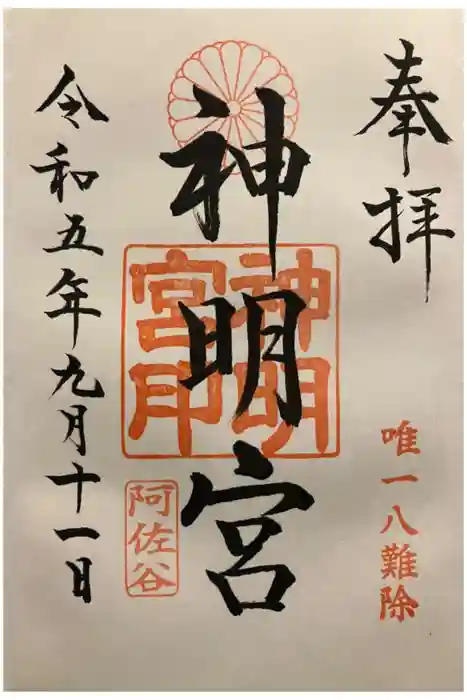 奉拝
唯一八難除
神明宮
神明
宮印
阿佐谷
令和五年九月十一日